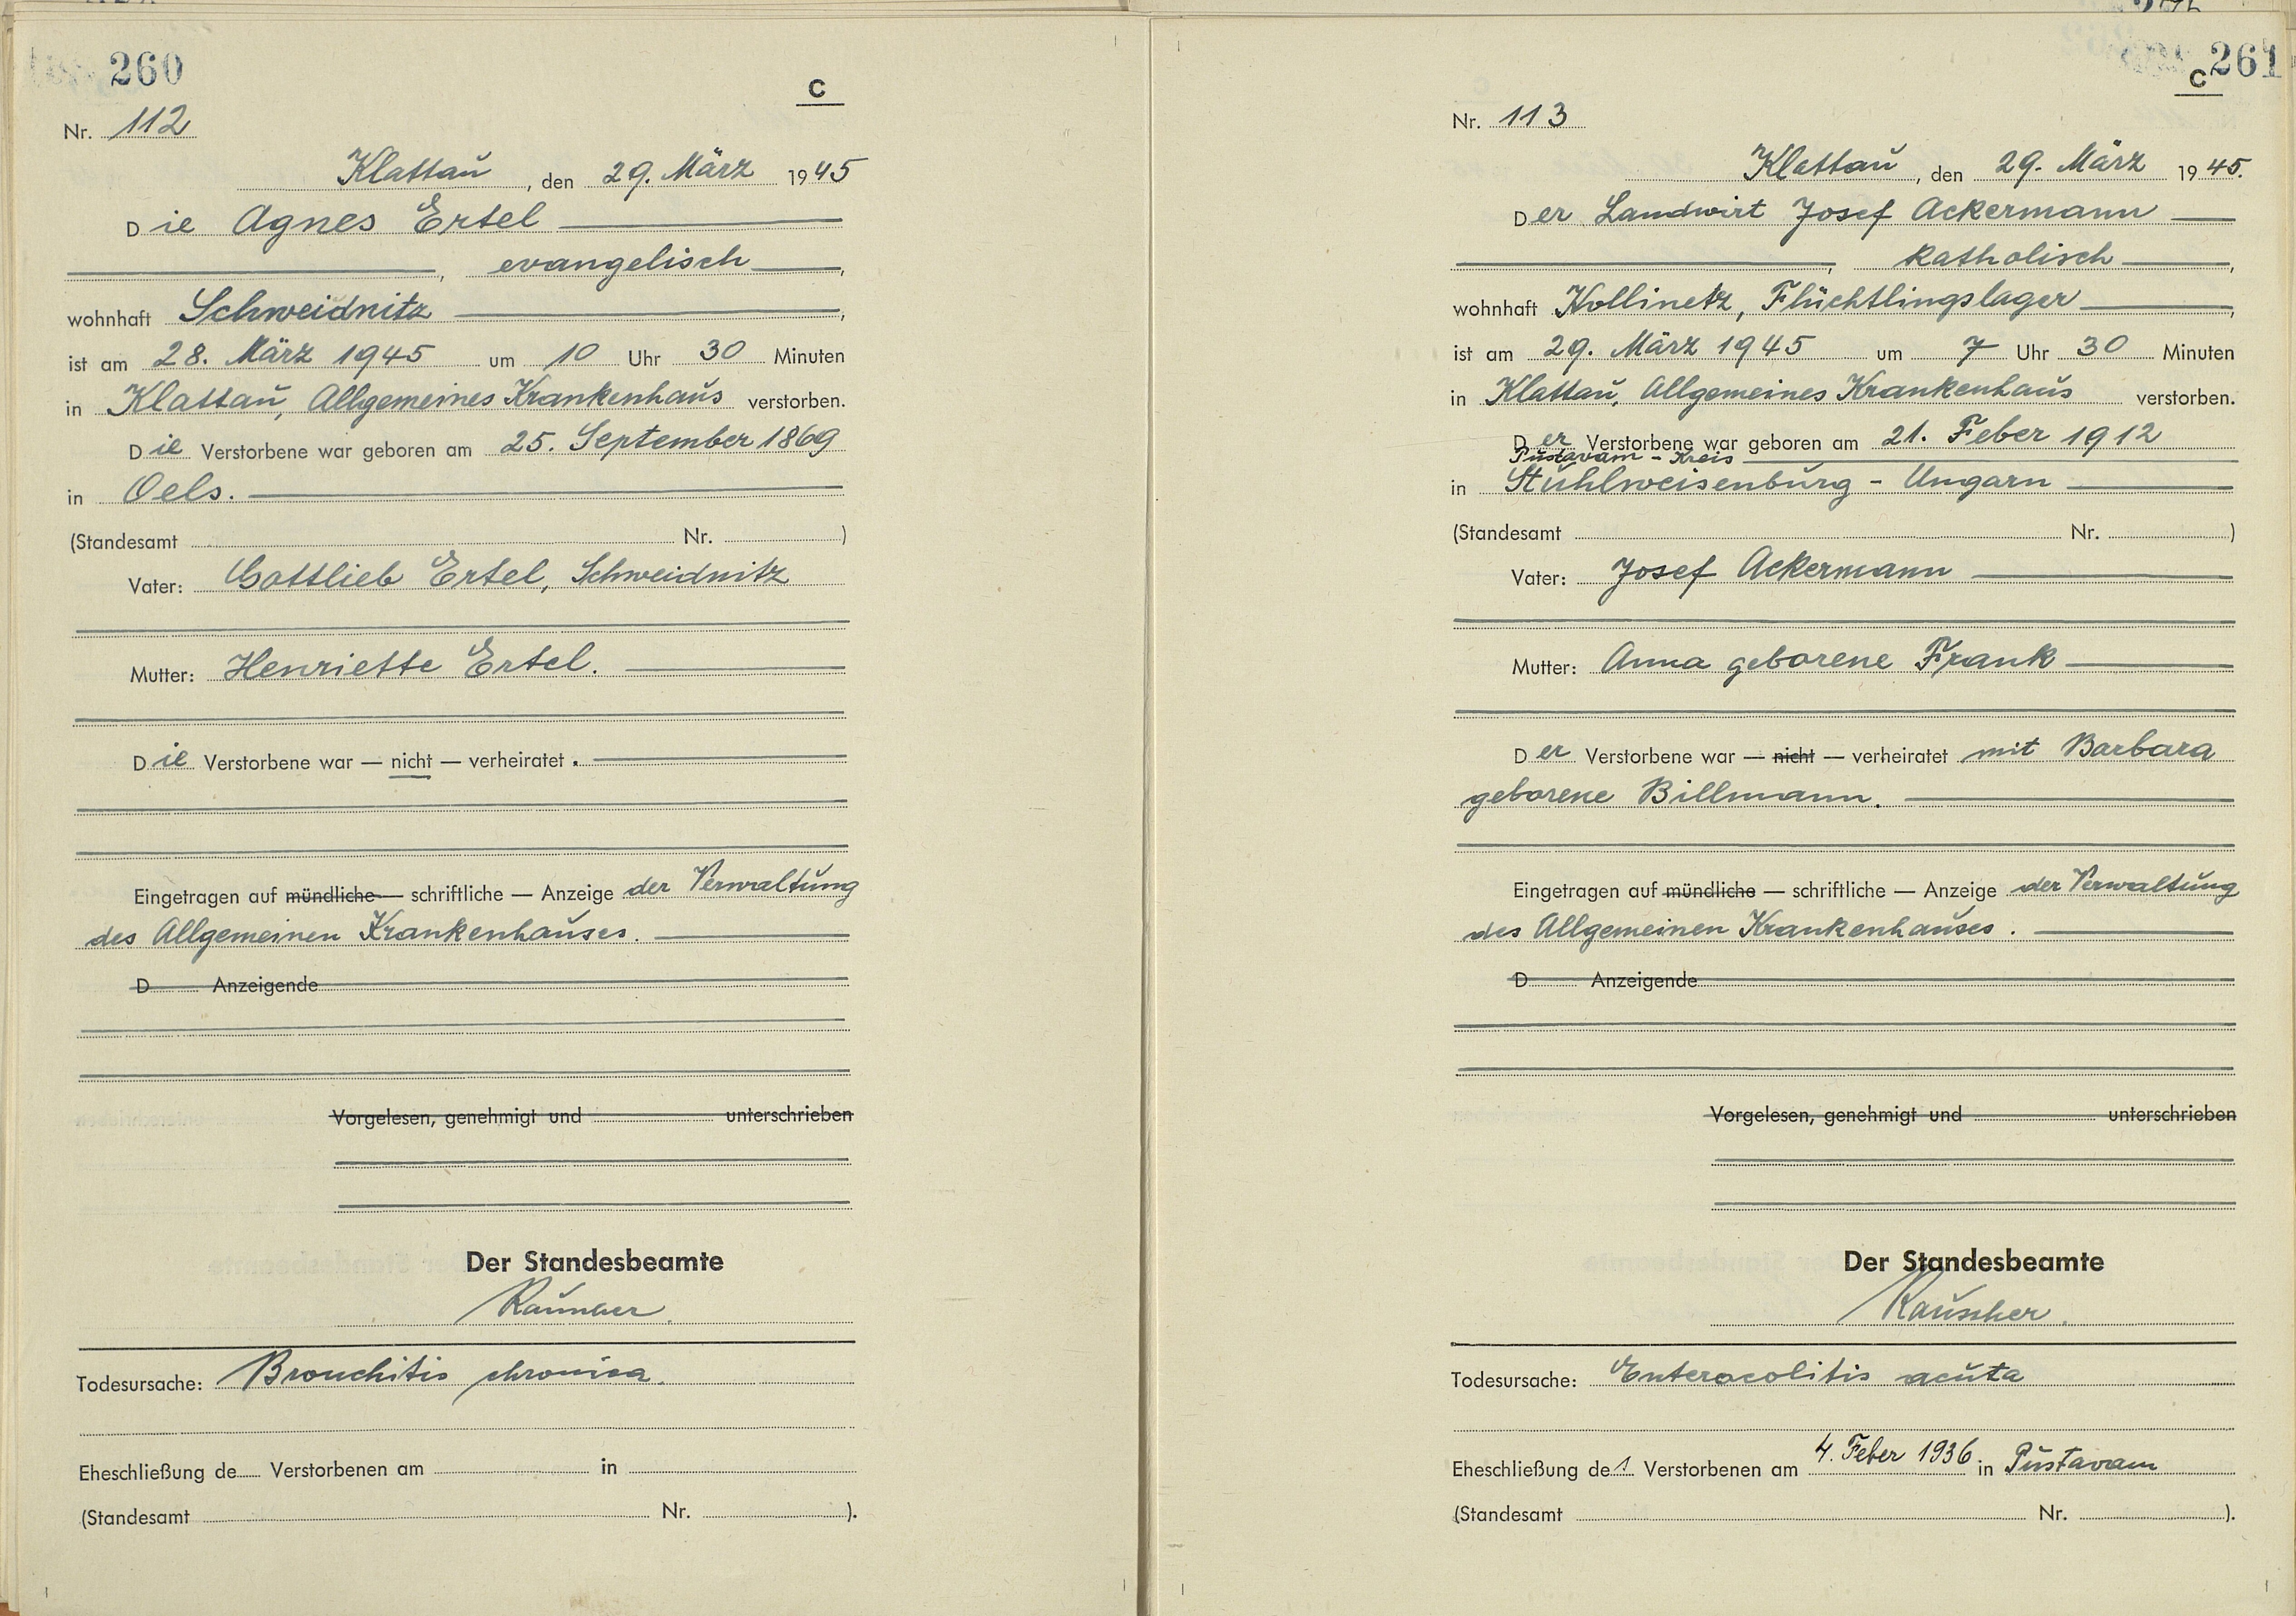 260
C
Nr. 112
Klattau, den 29. März 1945
Die Agnes Ertel
, evangelisch,
wohnhaft Schweidnitz,
ist am 28. März 1945 um 10 Uhr 30 Minuten
in Klattau, Allgemeines Krankenhaus verstorben.
Die Verstorbene war geboren am 25. September 1869
in Oels.
(Standesamt Nr. )
Vater: Gottlieb Ertel, Schweidnitz
Mutter: Henriette Ertel.
Die Verstorbene war — nicht — verheiratet.
Eingetragen auf mündliche — schriftliche — Anzeige der Verwaltung
des Allgemeinen Krankenhauses.
D Anzeigende
Vorgelesen, genehmigt und unterschrieben
Der Standesbeamte
Rauscher.
Todesursache: Bronchitis chronica.
Eheschließung de Verstorbenen am in
(Standesamt Nr. ).
C 261
Nr. 113
Klattau, den 29. März 1945.
Der Landwirt Josef Ackermann
, katholisch,
wohnhaft Kollinetz, Flüchtlingslager,
ist am 29. März 1945 um 7 Uhr 30 Minuten
in Klattau, Allgemeines Krankenhaus verstorben.
Der Verstorbene war geboren am 21. Feber 1912
Pustavam - Kreis
in Stuhlweisenburg - Ungarn
(Standesamt Nr. )
Vater: Josef Ackermann
Mutter: Anna geborene Frank
Der Verstorbene war — nicht — verheiratet mit Barbara
geborene Billmann.
Eingetragen auf mündliche — schriftliche — Anzeige der Verwaltung
des Allgemeinen Krankenhauses.
D Anzeigende
Vorgelesen, genehmigt und unterschrieben
Der Standesbeamte
Rauscher.
Todesursache: Enterocolitis acuta
Eheschließung des Verstorbenen am 4. Feber 1936 in Pustavam
(Standesamt Nr. ).